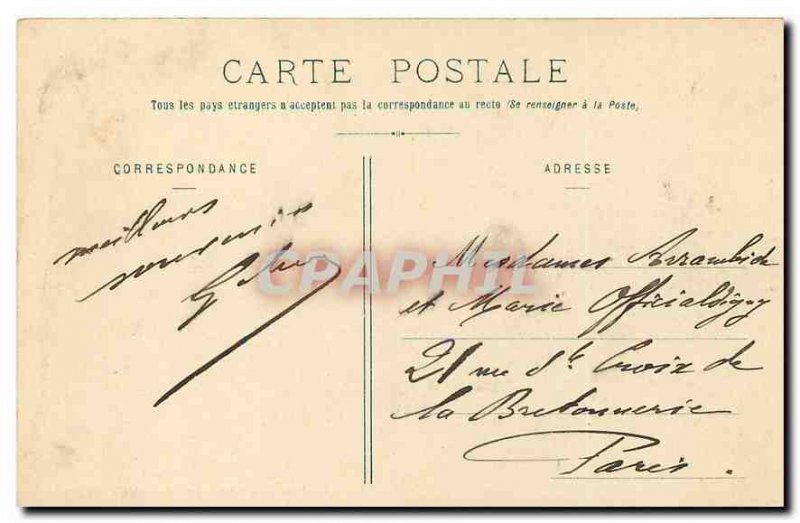 CARTE POSTALE
Tous les pays etrangers n'acceptent pas la correspondance au recto (Se renseigner à la Poste)
CORRESPONDANCE
ADRESSE
meilleurs
souvenirs
G
CPAPHIL
Mesdames Arrambide
et Marie
21 rue Ste Croix de
la Bretonnerie
Paris.